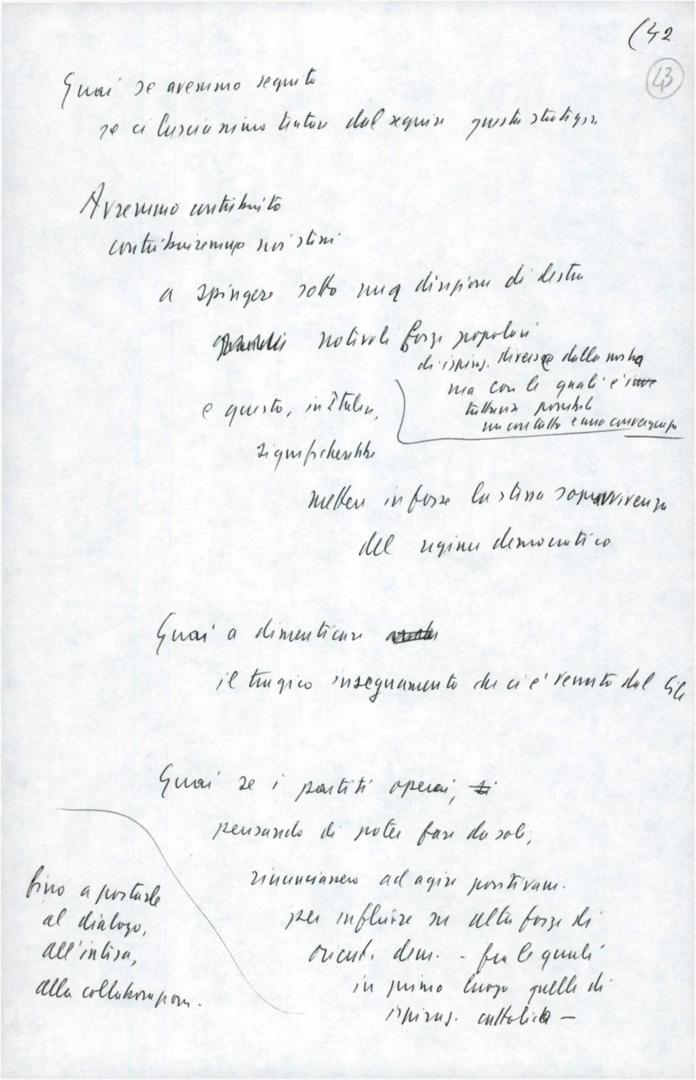 (42
43
Guai se avessimo seguito
se ci lasciassimo tentare dal seguire questa strategia
Avremmo contribuito
contribuiremmo noi stessi
a spingere sotto una direzione di destra
notevoli forze popolari
di ispiraz. diversa dalla nostra
ma con le quali è
tuttavia possibile
un contatto e una convergenza
e questo, in Italia,
significherebbe
mettere in forse la stessa sopravvivenza
del regime democratico
Guai a dimenticare
il tragico insegnamento che ci è venuto dal Cile
Guai se i partiti operai, si
pensando di poter fare da soli,
rinunciassero ad agire positivam.
per influire su altre forze di
orient. dem. - fra le quali
in primo luogo quelle di
ispiraz. cattolica —
fino a portarle
al dialogo,
all'intesa,
alla collaborazion.